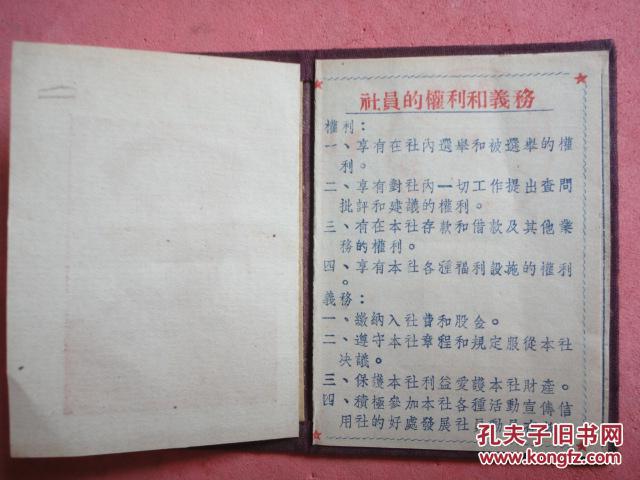 社員的權利和義務
權利：
一、享有在社內選舉和被選舉的權
利。
二、享有對社內一切工作提出查問
批評和建議的權利。
三、有在本社存款和借款及其他業
務的權利。
四、享有本社各種福利設施的權利
。
義務：
一、繳納入社費和股金。
二、遵守本社章程和規定服從本社
决議。
三、保護本社利益愛護本社財產。
四、積極參加本社各種活動宣傳信
用社的好處發展社員
孔夫子旧书网
www.kongfz.com